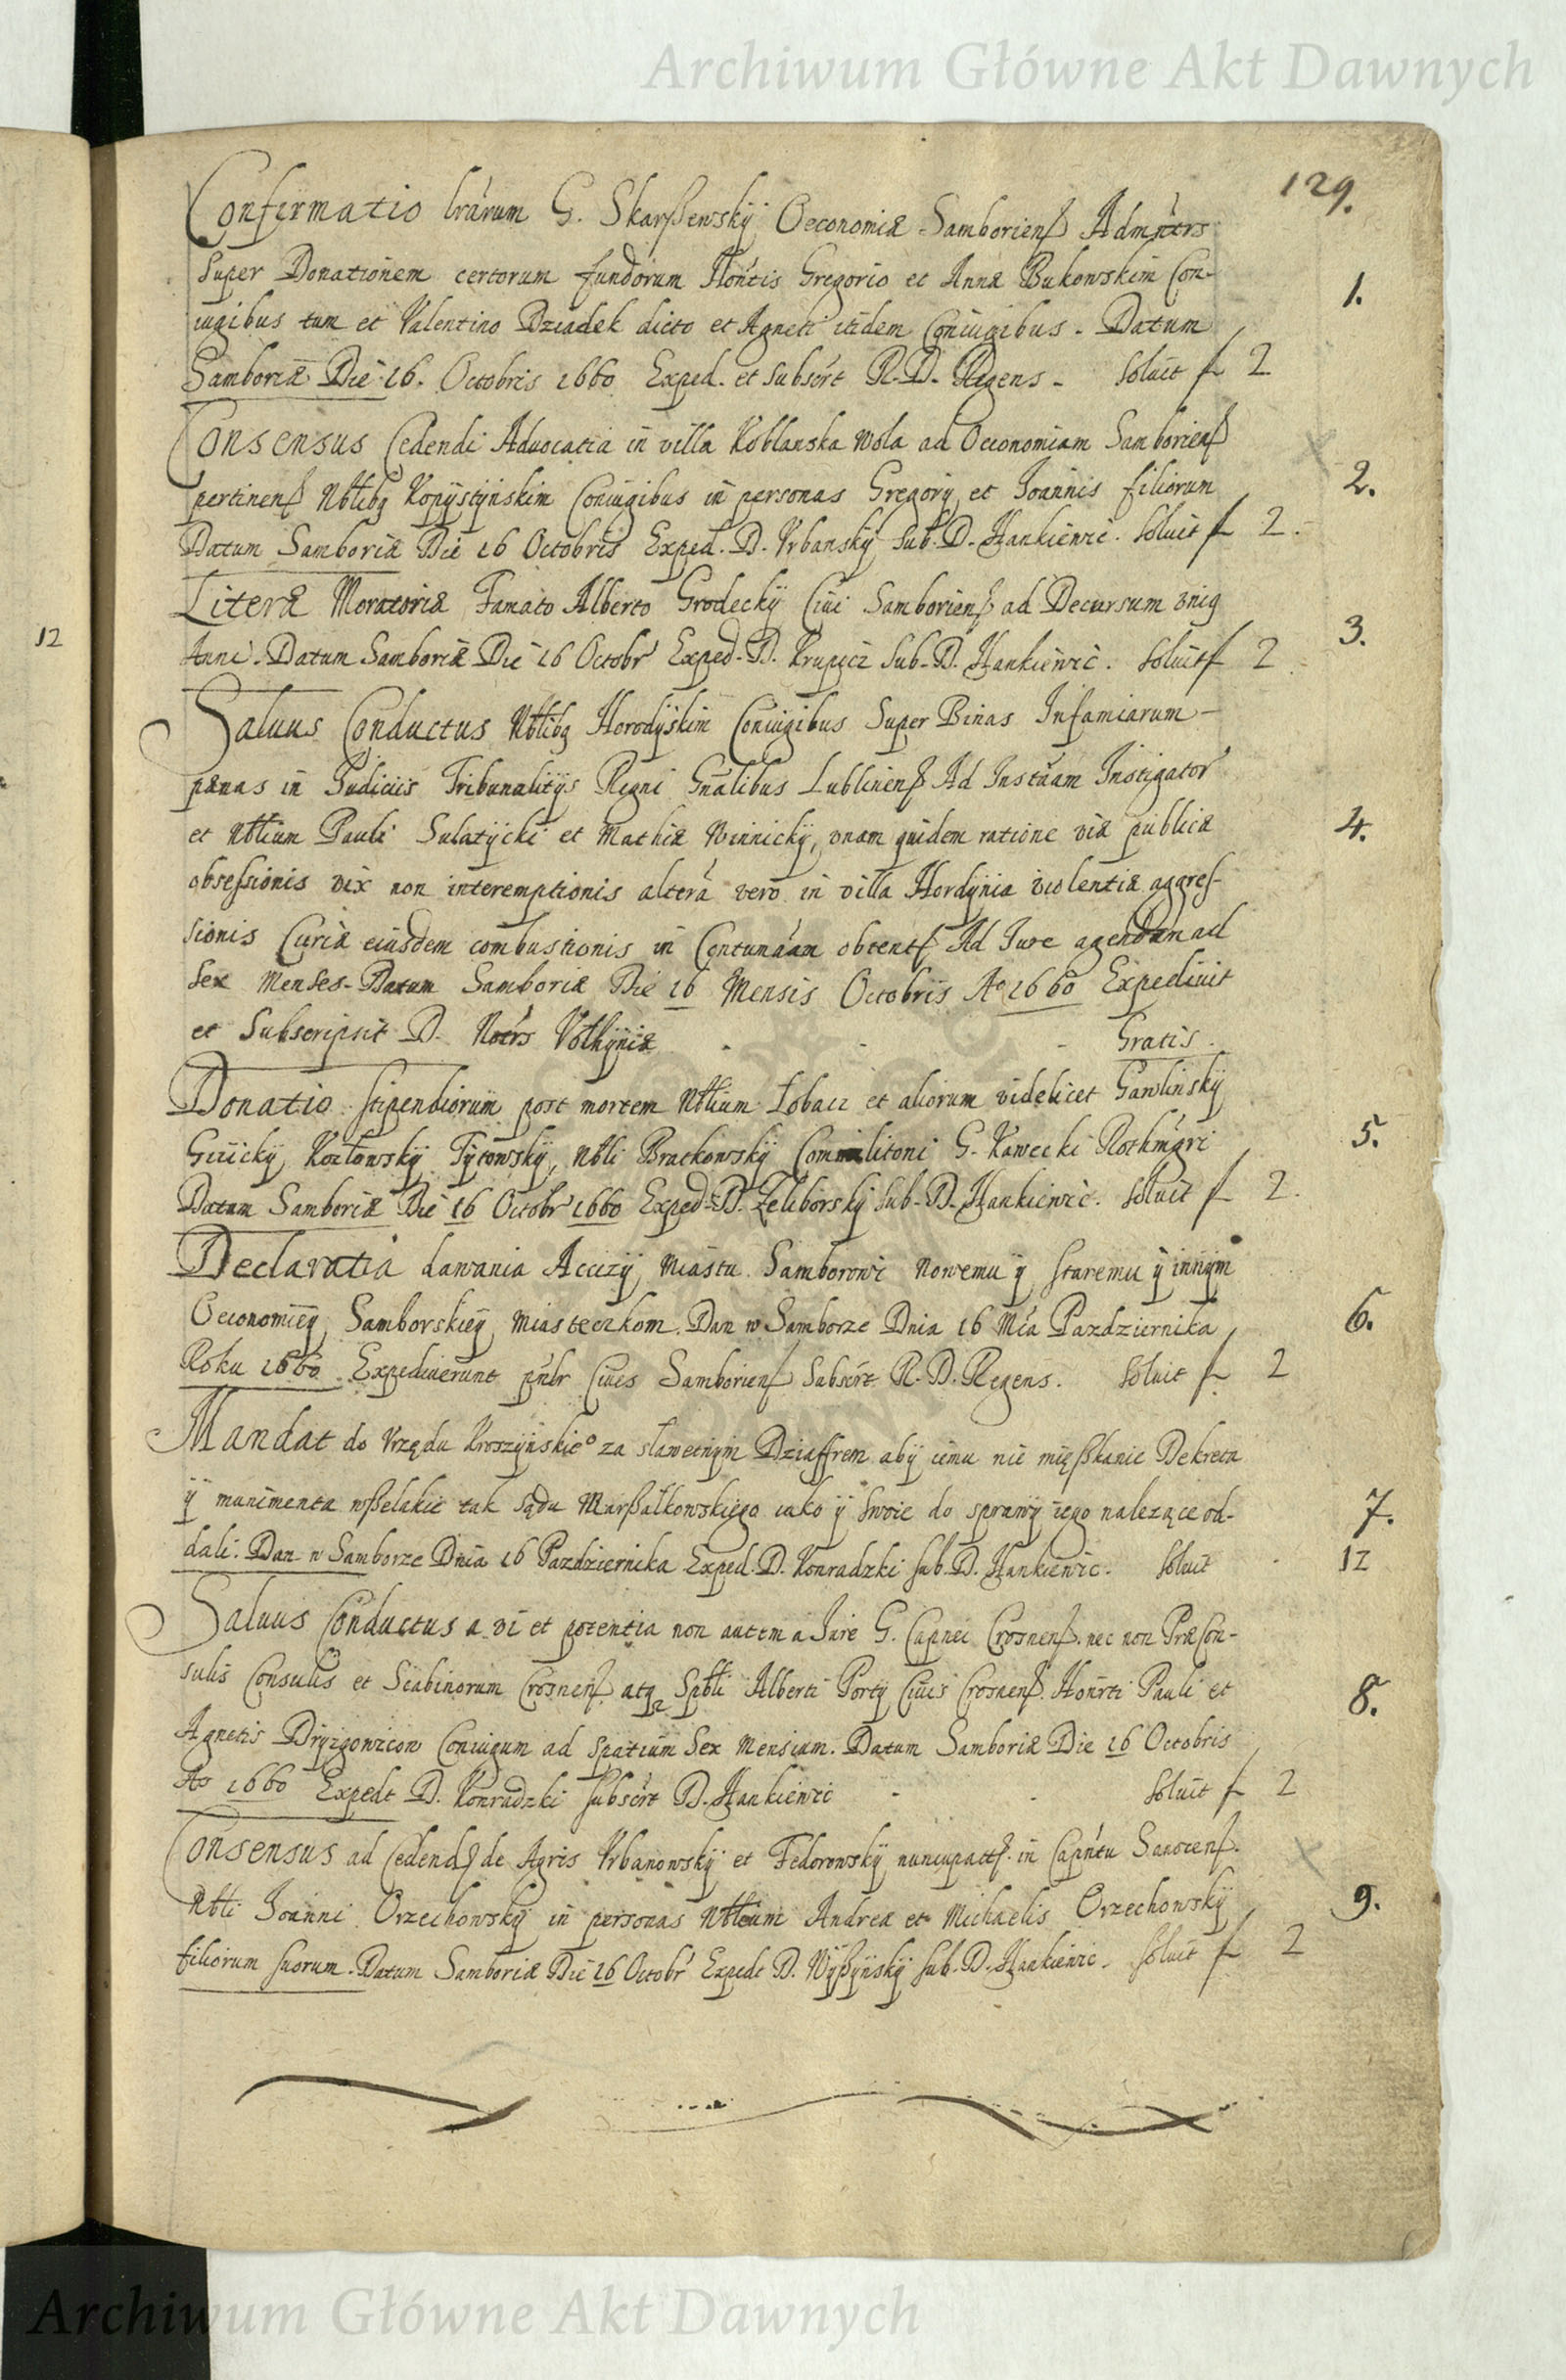 Archiwum Główne Akt Dawnych
129.
Confirmatio lrarum G. Skarßewsky Oeconomiæ Samboriens Admntrs
super Donationem certorum fundorum Hontis Gregorio et Annæ Bukowskim Con-
iugibus tum et Valentino Dziadek dicto et Agneti itidem Coniugibus. Datum 1.
Samboriæ Die 16. Octobris 1660 Exped. et subscrt R. D. Regens. soluit f 2
Consensus Cedendi Aduocatia in villa Koblanska wola ad Oeconomiam Samboriens
pertinens Nbtlibq Kopystynskim Coniugibus in personas Gregory et Joannis filiorum 2.
Datum Samboriæ Die 16 Octobris Exped. D. Vrbansky Sub. D. Hankiewic. soluit f 2.
Literæ Moratoriæ Famato Alberto Grodecky Ciui Samboriens ad Decursum vniq 3.
12
Anni. Datum Samboriæ Die 16 Octobr Exped. D. Krupicz Sub. D. Hankiewic. soluit f 2
Saluus Conductus Nbtlibq Horodyskim Coniugibus Super Binas Infamiarum
pænas in Judiciis Tribunalitys Regni Gnalibus Lublinens Ad Instuam Instigator
et Nbtlium Pauli Sulatycki et Mathiæ Winnicky, vnam quidem ratione viæ publicæ 4.
obsessionis vix non interemptionis altera vero in villa Hordynia violentiæ aggres-
sionis Curiæ eiusdem combustionis in Contumaam obtent Ad Jure agendum ad
sex Menses. Datum Samboriæ Die 16 Mensis Octobrys Ao 1660 Expediuit
et Subscripsit D. Notrs Volhyniæ Gratis.
Donatio stipendiorum post mortem Nbtlium Lobacz et aliorum videlicet Gawlinsky
Kozlowsky Tytowsky, Nbtli Bratkowsky Commilitoni G. Kawecki Rothmgri 5.
Datum Samboriæ Die 16 Octobr 1660 Exped. D. Zeliborsky Sub. D. Hankiewic. soluit f 2.
Declaratia dawania Accizy Miastu Samborowi Nowemu y staremu y innym
Oeconomiey Samborskiey Miasteczkom. Dan w Samborze Dnia 16 Mca Pazdziernika 6.
Roku 1660. Expediuerunt Ciues Samboriens Subscrt R. D. Regens. soluit f 2
Mandat do Vrzędu Kroszynskieo za slawetnym Dziaffrem aby iemu nie mięßkanie Dekreta
y munimenta wßelakie tak sądu Marßałkowskiego iako y swoie do sprawy iego nalezące od- 7.
dali. Dan w Samborze Dnia 16 Pazdziernika Exped. D. Konradzki sub. D. Hankiewic. soluit 12
Saluus Conductus a vi et potentia non autem a Jure G. Capnei Crosnens. nec non PræCon-
sulis Consulis et Scabinorum Crosnens atq Spbtli Alberti Porty Ciuis Crosnens. Honrti Pauli et 8.
Agnetis Dryzgowicow Coniugum ad spatium Sex Mensium. Datum Samboriæ Die 16 Octobris
Ao 1660 Expedt D. Konradzki subscrt D. Hankiewic soluit f 2
Consensus ad Cedend de Agris Vrbanowsky et Fedorowsky nuncupatt. in Capntu Sanocens.
Nbtli Joanni Orzechowsky in personas Nbtlium Andreæ et Michaelis Orzechowsky 9.
filiorum suorum. Datum Samboriæ Die 16 Octobr Expedt D. Wyßynsky sub. D. Hankiewic. soluit f 2
Archiwum Główne Akt Dawnych